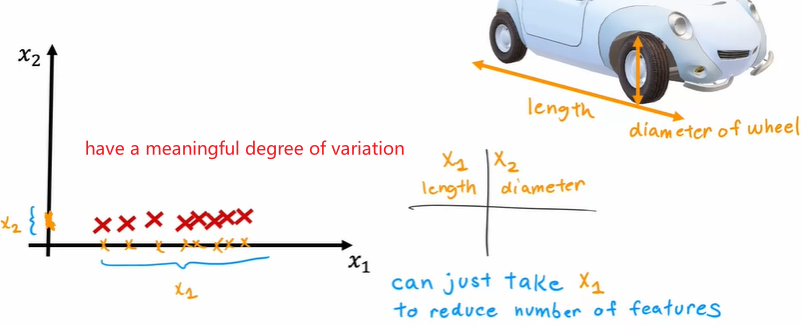 x₂
have a meaningful degree of variation
x₂
x₁
x₁
length
diameter of wheel
x₁ x₂
length diameter
can just take x₁
to reduce number of features